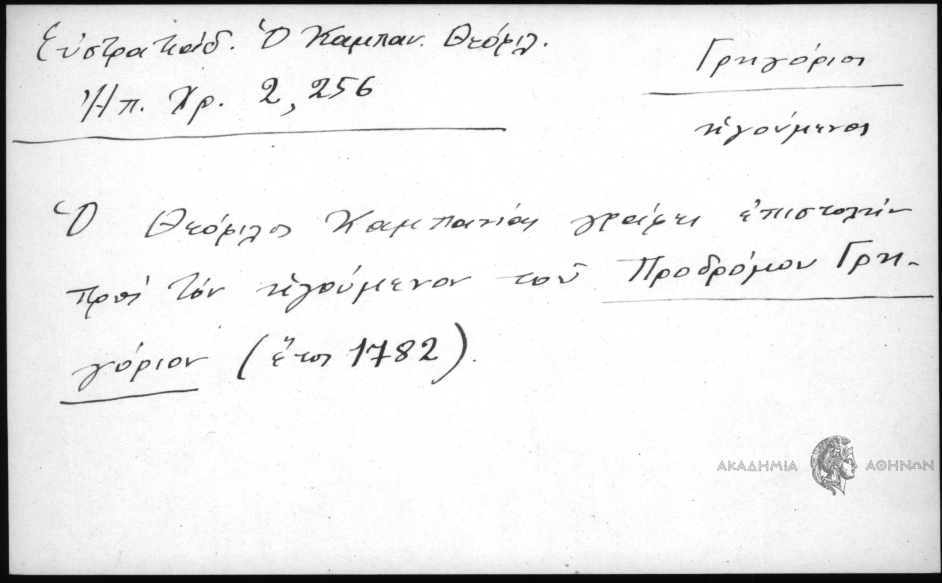 Εὐστρατιάδ. Ὁ Καμπαν. Θεόφιλ.
Ἠπ. Χρ. 2, 256
Γρηγόριος
ἡγούμενος
Ὁ Θεόφιλος Καμπανίας γράφει ἐπιστολὴν
πρὸς τὸν ἡγούμενον τοῦ Προδρόμου Γρη-
γόριον (ἔτος 1782).
ΑΚΑΔΗΜΙΑ ΑΘΗΝΩΝ